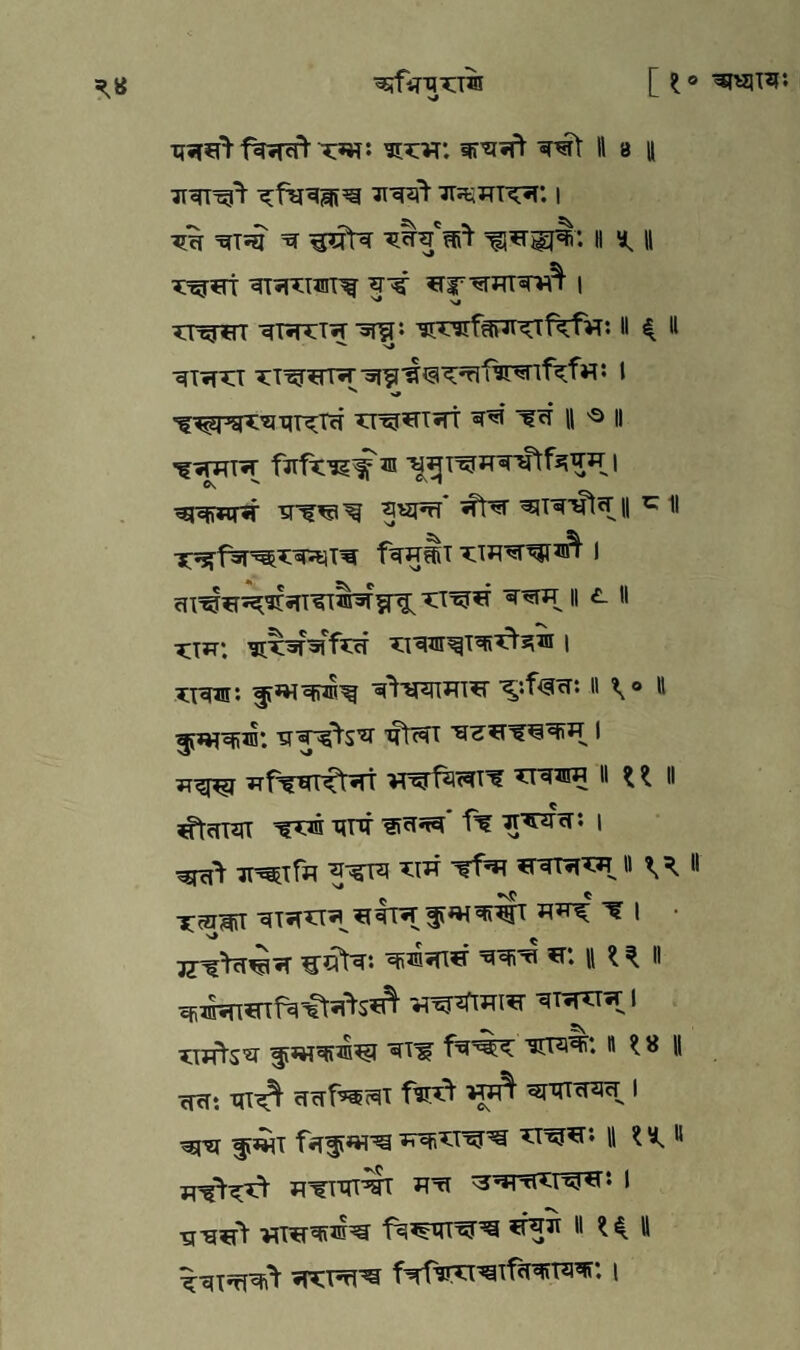 २४ अग्निपुराणे [ १० अध्यायः
पनसो विनतो रम्भः शरभः क्रथनो बली ॥ ४ ॥
गवयो दधिवक्त्रश्च गवयो गन्धमादनः ।
एते चान्ये च सुग्रीव एतैर्युक्तो ह्यसङ्ख्यकैः ॥ ५ ॥
रक्षसां वानराणाञ्च युद्धं सङ्कुलमाबभौ ।
राक्षसा वानरान् जघ्नुः शरशक्तिगदादिभिः ॥ ६ ॥
वानरा राक्षसान् जघ्नुर्नखदन्तशिलादिभिः ।
हस्त्यश्वरथपादातं राक्षसानां बलं हतं ॥ ७ ॥
हनूमान् गिरिशृङ्गेण धूम्राक्षमबधीद्रिपुम् ।
अकम्पनं प्रहस्तञ्च युध्यन्तं नील आबधीत् ॥ ८ ॥
इन्द्रजिच्छरबन्धाच्च विमुक्तौ रामलक्ष्मणौ ।
तार्क्ष्यसन्दर्शनाद्बाणैर्जघ्नतू राक्षसं बलम् ॥ ९ ॥
रामः शरैर्जर्जरितं रावणञ्चाकरोद्रणे ।
रावणः कुम्भकर्णञ्च बोधयामास दुःखितः ॥ १० ॥
कुम्भकर्णः प्रबुद्धोऽथ पीत्वा घटसहस्रकम् ।
मद्यस्य महिषादीनां भक्षयित्वाह रावणम् ॥ ११ ॥
सीताया हरणं पापं कृतन्त्वं हि गुरुर्यतः ।
अतो गच्छामि युद्धाय रामं हन्मि सवानरम् ॥ १२ ॥
इत्युक्त्वा वानरान् सर्वान् कुम्भकर्णो ममर्द ह ।
गृहीतस्तेन सुग्रीवः कर्णनासं चकर्त्त सः ॥ १३ ॥
कर्णनासाविहीनोऽसौ भक्षयामास वानरान् ।
रामोऽथ कुम्भकर्णस्य बाहू चिच्छेद शायकैः ॥ १४ ॥
ततः पादौ ततश्छित्त्वा शिरो भूमौ व्यपातयत् ।
अथ कुम्भो निकुम्भश्च मकराक्षश्च राक्षसः ॥ १५ ॥
महोदरो महापार्श्वो मत्त उन्मत्तराक्षसः ।
प्रघसो भासकर्णश्च विरूपाक्षश्च संयुगे ॥ १६ ॥
देवान्तको नरान्तश्च त्रिशिराश्चातिकायकः ।